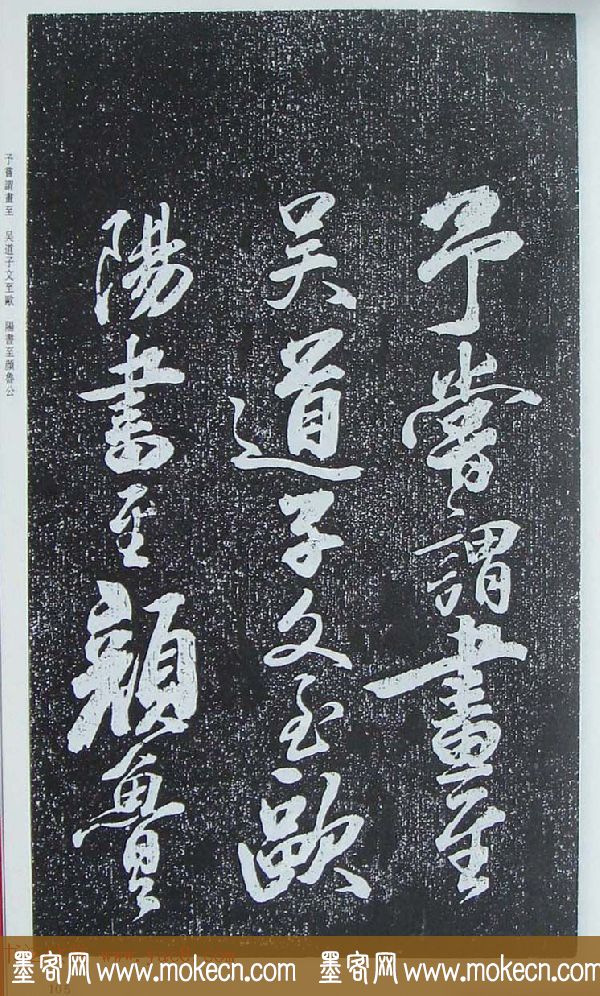 予嘗謂畫至
吳道子文至歐
陽書至顏魯
予嘗謂畫至 吳道子文至歐 陽書至顏魯公
墨客网 www.mokecn.com 墨客网 www.mokecn.com
105